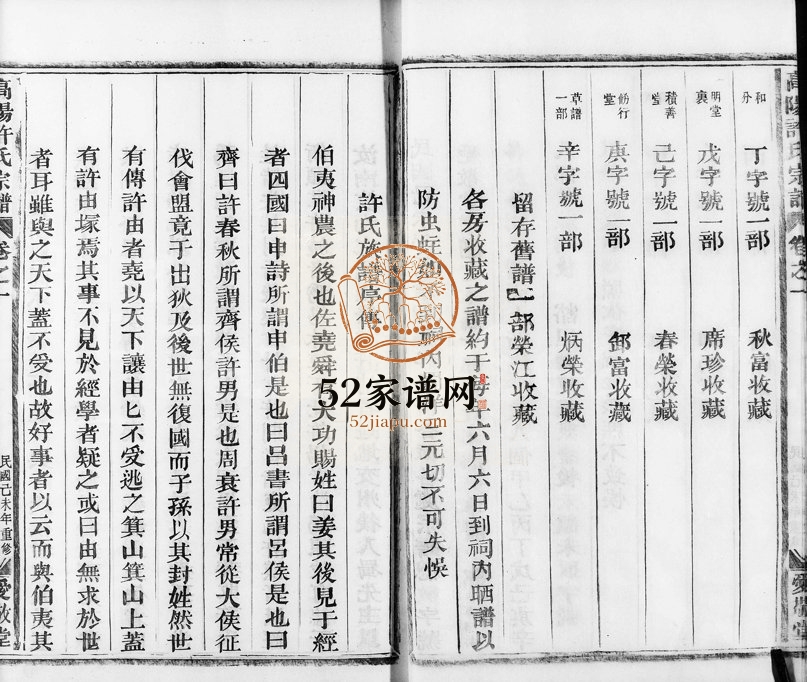 高陽許氏宗譜 卷之一
和分 丁字號一部 秋富收藏
明堂裏 戊字號一部 席珍收藏
積善堂 己字號一部 春榮收藏
飭行堂 庚字號一部 富收藏
草譜一部 辛字號一部 炳榮收藏
留存舊譜 一部榮江收藏
各房收藏之譜約于每年六月六日到祠內晒譜以
防虫蛀 元切不可失悞
許氏族譜序傳
伯夷神農之後也佐堯舜有大功賜姓曰姜其後見于經
者四國曰申詩所謂申伯是也曰呂書所謂呂侯是也曰
齊曰許春秋所謂齊侯許男是也周衰許男常從大侯征
伐會盟竟于出狄及後世無復國而子孫以其封姓然世
有傳許由者堯以天下讓由匕不受逃之箕山箕山上蓋
有許由塚焉其事不見於經學者疑之或曰由無求於世
者耳雖與之天下蓋不受也故好事者以云而與伯夷其
高陽許氏宗譜 卷之一 民國己未年重修 愛敬堂
52家谱网
52jiapu.com